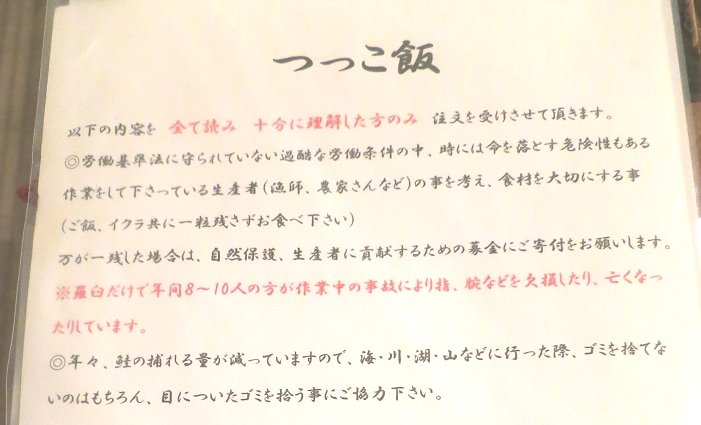 つっこ飯
以下の内容を 全て読み 十分に理解した方のみ 注文を受けさせて頂きます。
◎労働基準法に守られていない過酷な労働条件の中、時には命を落とす危険性もある
作業をして下さっている生産者(漁師、農家さんなど)の事を考え、食材を大切にする事
(ご飯、イクラ共に一粒残さずお食べ下さい)
万が一残した場合は、自然保護、生産者に貢献するための募金にご寄付をお願いします。
※羅臼だけで年間8~10人の方が作業中の事故により指、腕などを欠損したり、亡くなっ
たりしています。
◎年々、鮭の捕れる量が減っていますので、海・川・湖・山などに行った際、ゴミを捨てな
いのはもちろん、目についたゴミを拾う事にご協力下さい。